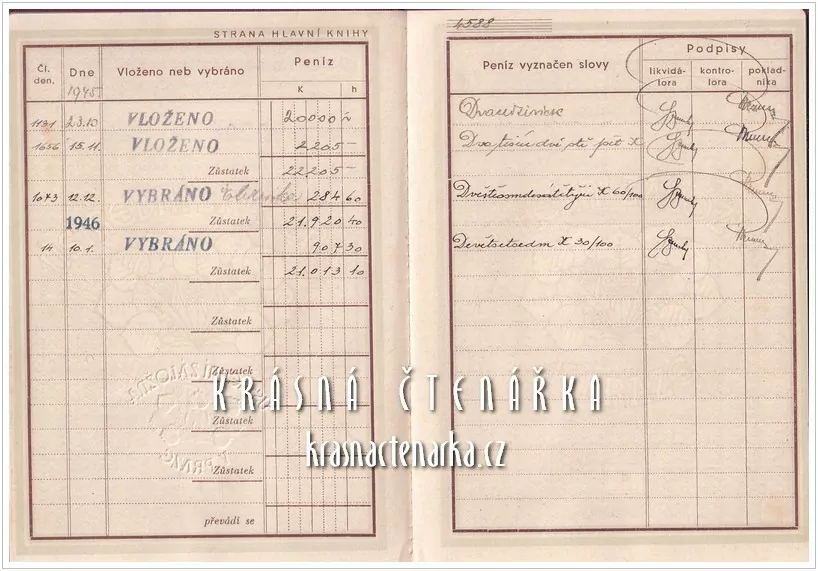 STRANA HLAVNÍ KNIHY
Čl. den. Dne 1945 Vloženo neb vybráno Peníz K h
1131 23.10 VLOŽENO 20000 –
1656 15.11. VLOŽENO 2205 –
Zůstatek 22205 –
1073 12.12. VYBRÁNO 284 60
1946 Zůstatek 21.920 40
14 10.1. VYBRÁNO 907 30
Zůstatek 21.013 10
Zůstatek
Zůstatek
Zůstatek
Zůstatek
převádí se
4588
Peníz vyznačen slovy Podpisy
likvidá-tora kontro-lora poklad-níka
Dvacettisíc
Dvatisíce dvě stě pět K
K 60/100
Devětsetsedm K 30/100
KRÁSNÁ ČTENÁŘKA
krasnactenarka.cz